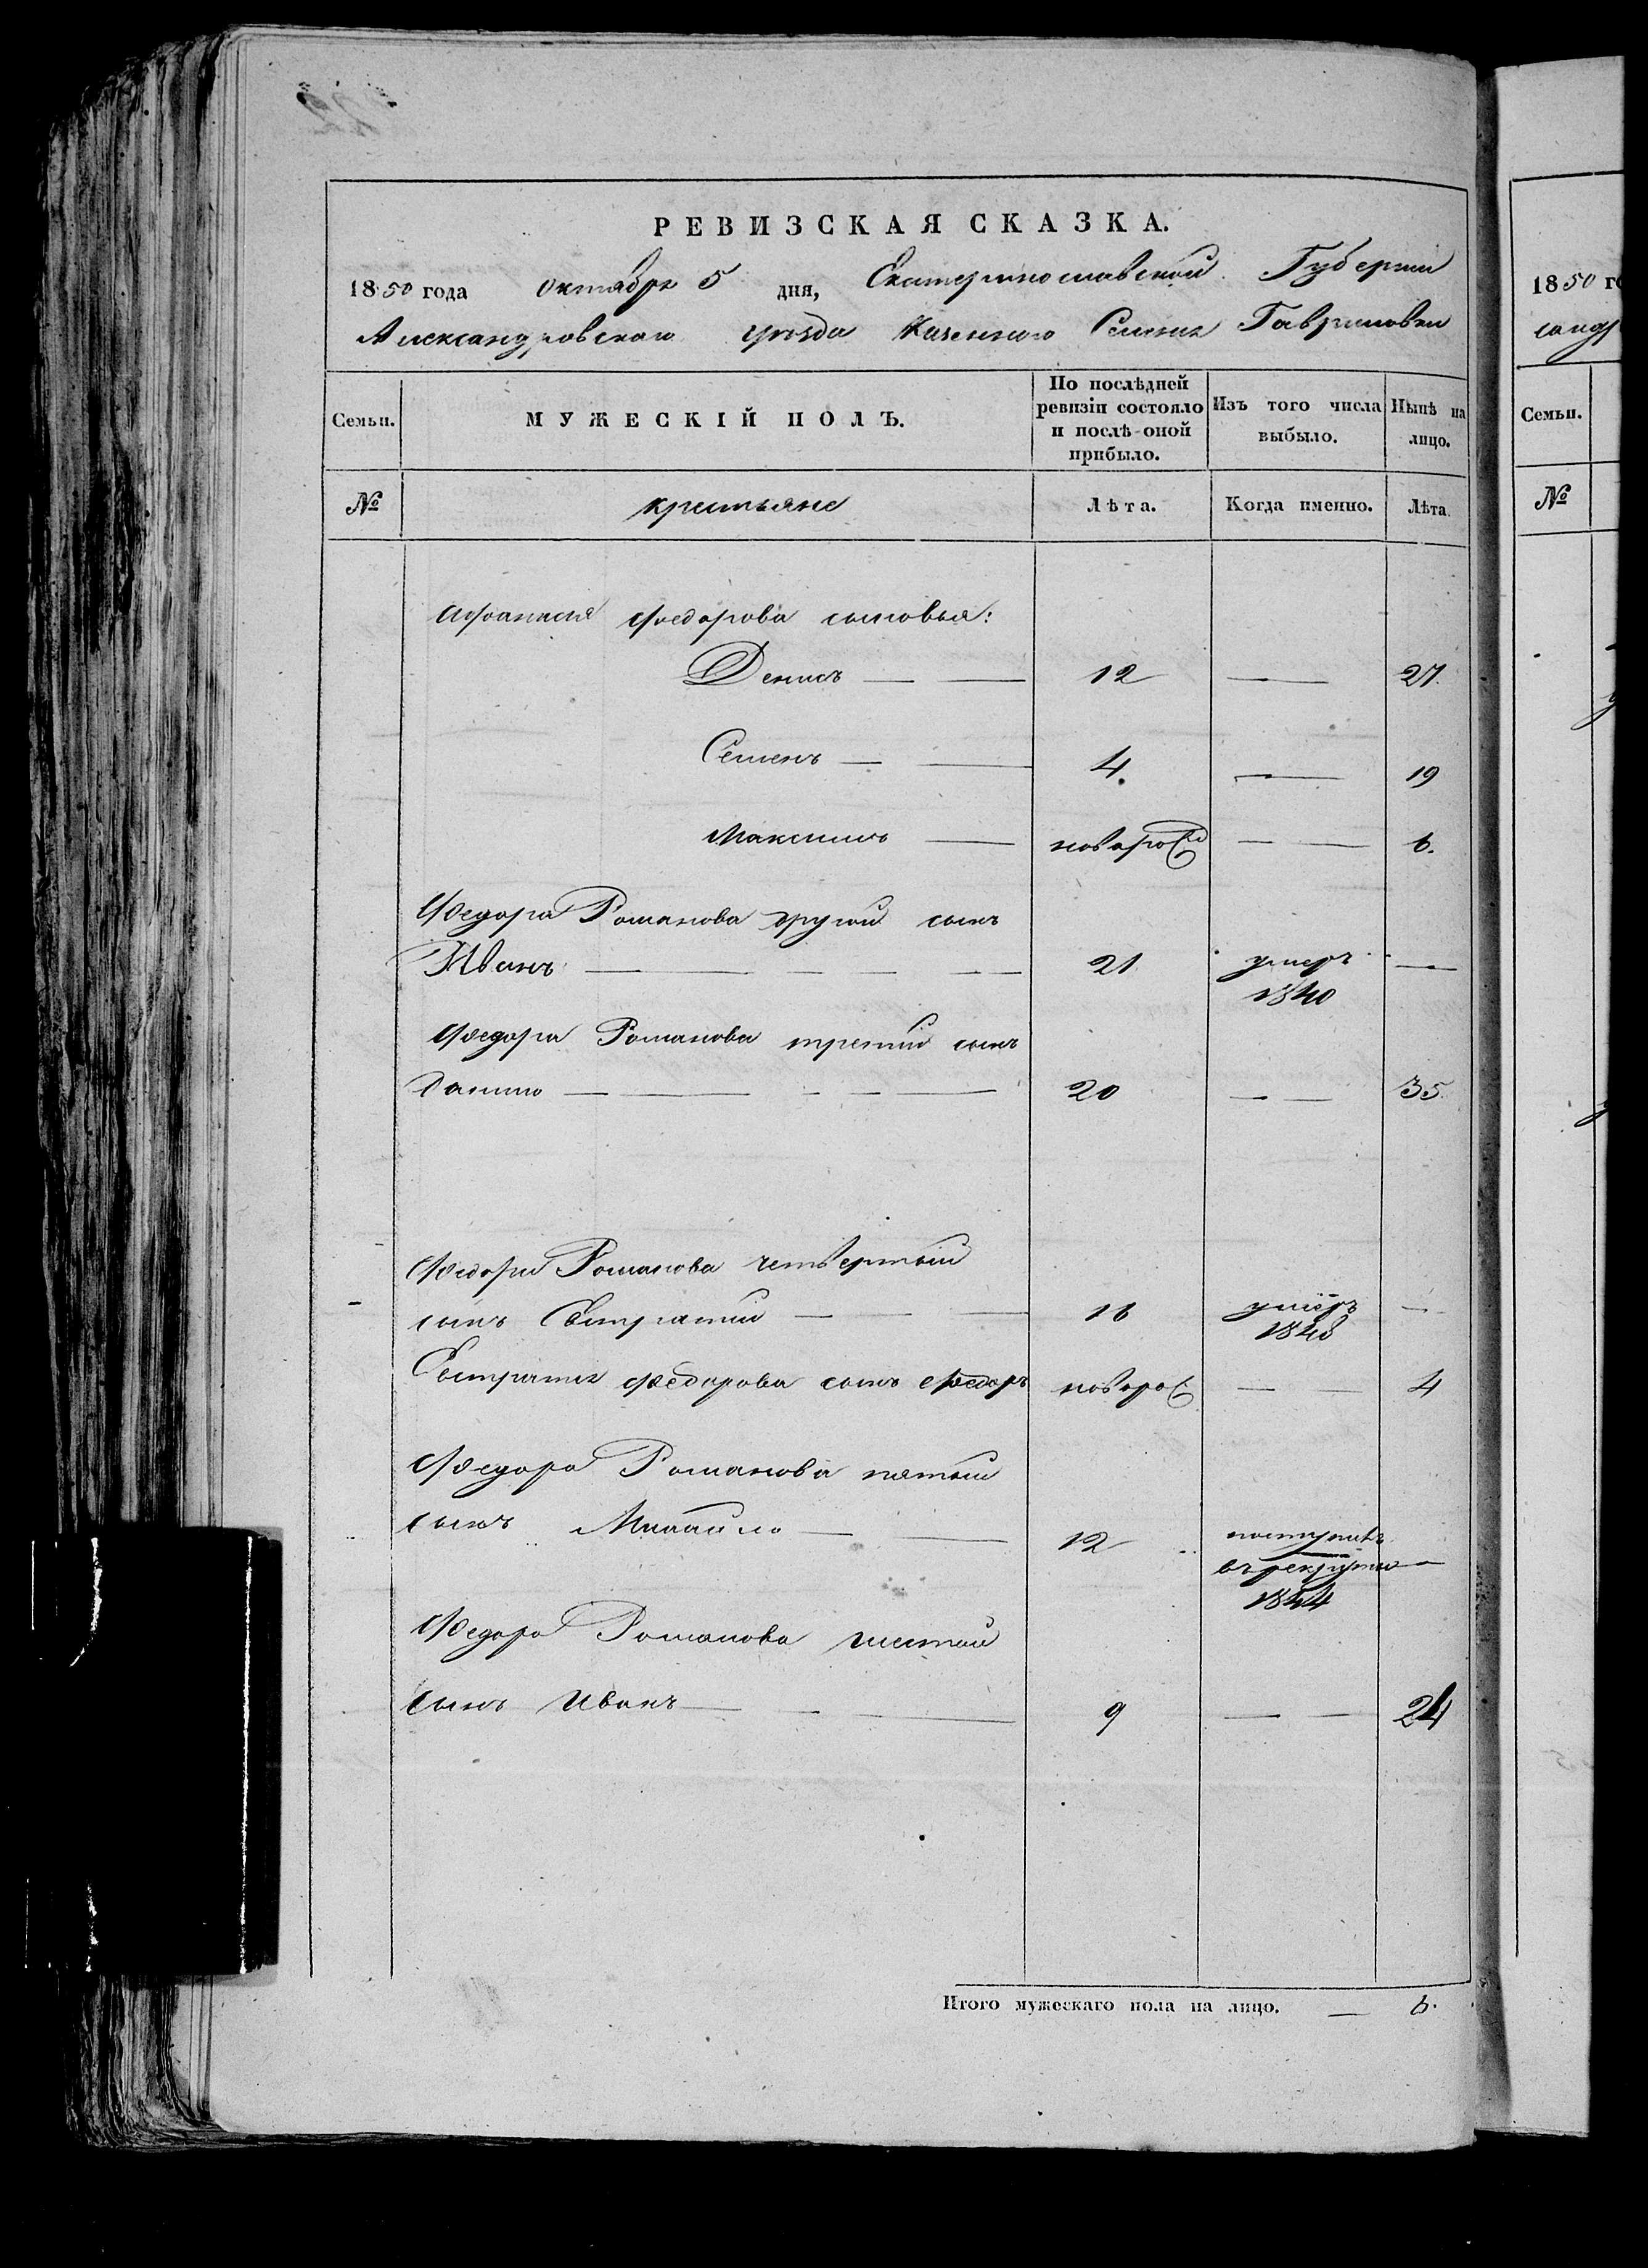 РЕВИЗСКАЯ СКАЗКА.
1850 года октября 5 дня, Екатеринославской Губернии
Александровскаго уезда Казенного Селения Гавриловки
Семьи.
МУЖЕСКІЙ ПОЛЪ.
По послѣдней ревизіи состояло и послѣ оной прибыло.
Изъ того числа выбыло.
Нынѣ на лицо.
№ крестьяне Лѣта. Когда именно. Лѣта.
Афанасия Федорова сыновья:
Денисъ — — 12 — 27.
Семенъ — — 4. — 19
Максимъ — новорож — — 6.
Федора Романова другой сынъ
Иванъ — — — — — 21 умеръ —
1840
Федора Романова третий сынъ
Данило — — — — — 20 — — 35.
Федора Романова четвертый
сынъ Евстратий — — — 16 умеръ —
1848
Евстратия Федорова сынъ Федоръ новорож — — 4
Федора Романова пятый
сынъ Михайло — — 12 поступилъ
въ рекруты —
1844
Федора Романова шестой
сынъ Иванъ — — — 9 — — 24
Итого мужескаго пола на лицо. — 6.
1850 го
Семьи.
№